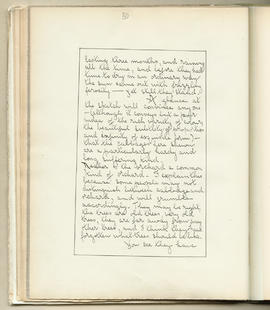 30
lasting three months, and raining
all the time, and before they had
time to dry in an ordinary way
the sun came out with frizzling
ferocity — yet still they stand!
A glance at
the sketch will convince any one
— (although it conveys but a poor
idea of the rich variety of hues
the beautiful subtlety of
and infinity of exquisite form —
that the cabbages here shown
are a particularly hardy and
long suffering kind.
Neither is the orchard a common
kind of orchard. I explain this
because some people may not
distinguish between cabbages and
orchard, and will grumble
accordingly. They may be right
the trees are old trees very old
trees, they are far away from any
other trees, and I think they've
forgotten what trees should be like.
You see they have